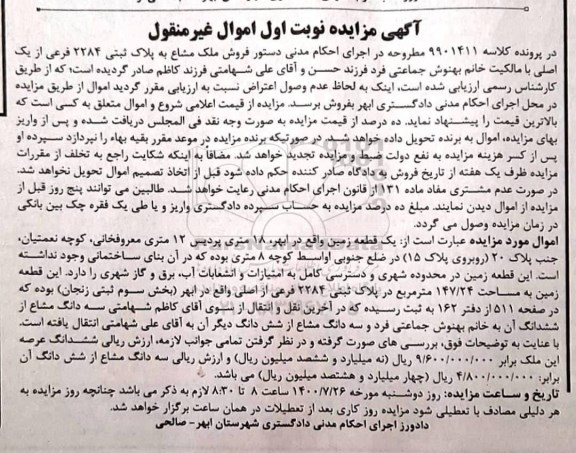 آگهی مزایده نوبت اول اموال غیرمنقول
در پرونده کلاسه ۹۹۰۱۴۱۱ مطروحه در اجرای احکام مدنی دستور فروش ملک مشاع به پلاک ثبتی ۲۲۸۴ فرعی از یک
اصلی با مالکیت خانم بهنوش جماعتی فرد فرزند حسن و آقای علی شهامتی فرزند کاظم صادر گردیده است؛ که از طریق
کارشناس رسمی ارزیابی شده است، اینک به لحاظ عدم وصول اعتراض نسبت به ارزیابی مقرر گردید اموال از طریق مزایده
در محل اجرای احکام مدنی دادگستری ابهر بفروش برسد. مزایده از قیمت اعلامی شروع و اموال متعلق به کسی است که
بالاترین قیمت را پیشنهاد نماید. ده درصد از قیمت مزایده به صورت وجه نقد فی المجلس دریافت شده و پس از واریز
بهای مزایده، اموال به برنده تحویل داده خواهد شد. در صورتیکه برنده مزایده در موعد مقرر بقیه بهاء را نپردازد سپرده او
پس از کسر هزینه مزایده به نفع دولت ضبط و مزایده تجدید خواهد شد. مضافاً به اینکه شکایت راجع به تخلف از مقررات
مزایده ظرف یک هفته از تاریخ فروش به دادگاه صادر کننده حکم داده شود قبل از اتخاذ تصمیم اموال تحویل نخواهد شد.
در صورت عدم مشتری مفاد ماده ۱۳۱ از قانون اجرای احکام مدنی رعایت خواهد شد. طالبین می توانند پنج روز قبل از
مزایده از اموال دیدن نمایند. مبلغ ده درصد مزایده به حساب سپرده دادگستری واریز و یا طی یک فقره چک بین بانکی
در زمان مزایده وصول می گردد.
اموال مورد مزایده عبارت است از: یک قطعه زمین واقع در ابهر، ۲۰ متری پردیس ۱۲ متری معروفخانی، کوچه نعمتیان،
جنب پلاک ۲۰ (روبروی پلاک ۱۵) در ضلع جنوبی اواسط کوچه ۸ متری بوده که در آن بنای ساختمانی وجود نداشته
است. این قطعه زمین در محدوده شهری و دسترسی کامل به امتیازات و انشعابات آب، برق و گاز شهری را دارد. این قطعه
زمین به مساحت ۱۴۷/۲۴ مترمربع در پلاک ثبتی ۲۲۸۴ فرعی از اصلی واقع در ابهر (بخش سوم ثبتی زنجان) بوده که
در صفحه ۵۱۱ از دفتر ۱۶۲ به ثبت رسیده که در آخرین نقل و انتقال از سوی آقای کاظم شهامتی سه دانگ مشاع از
ششدانگ آن به خانم بهنوش جماعتی فرد و سه دانگ مشاع از شش دانگ دیگر آن به آقای علی شهامتی انتقال یافته است.
با عنایت به توضیحات فوق، بررسی های صورت گرفته و در نظر گرفتن تمامی جوانب لازمه، ارزش ریالی ششدانگ عرصه
این ملک برابر ۹/۶۰۰/۰۰۰/۰۰۰ ریال (نه میلیارد و ششصد میلیون ریال) و ارزش ریالی سه دانگ مشاع از شش دانگ آن
برابر: ۴/۸۰۰/۰۰۰/۰۰۰ ریال (چهار میلیارد و هشتصد میلیون ریال) می باشد.
تاریخ و ساعت مزایده: روز دوشنبه مورخه ۱۴۰۰/۷/۲۶ ساعت ۸ تا ۸:۳۰ لازم به ذکر می باشد چنانچه روز مزایده به
هر دلیلی مصادف با تعطیلی شود مزایده روز کاری بعد از تعطیلات در همان ساعت برگزار خواهد شد.
دادورز اجرای احکام مدنی دادگستری شهرستان ابهر- صالحی